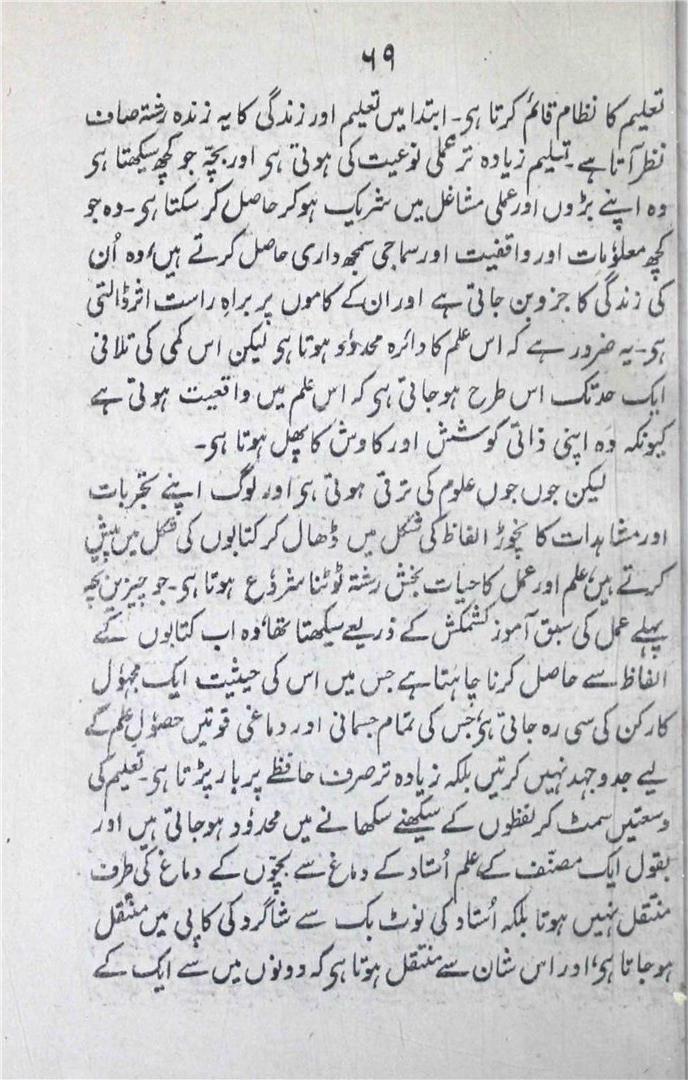 ۶۹
تعلیم کا نظام قائم کرتا ہی۔ ابتدا میں تعلیم اور زندگی کا یہ زندہ رشتہ صاف
نظر آتا ہے۔ تعلیم زیادہ تر عملی نوعیت کی ہوتی ہی اور بچّہ جو کچھ سیکھتا ہی
وہ اپنے بڑوں اور عملی مشاغل میں شریک ہو کر حاصل کر سکتا ہی۔ وہ جو
کچھ معلوُمات اور واقفیت اور سماجی سمجھ داری حاصل کرتے ہیں، وہ اُن
کی زندگی کا جزو بن جاتی ہے اور ان کے کاموں پر براہِ راست اثر ڈالتی
ہی۔ یہ ضرور ہے کہ اس علم کا دائرہ محدوُد ہوتا ہی لیکن اس کمی کی تلافی
ایک حد تک اس طرح ہوجاتی ہی کہ اس علم میں واقعیت ہوتی ہے
کیونکہ وہ اپنی ذاتی کوشش اور کاوش کا پھل ہوتا ہی۔
لیکن جوں جوں علوم کی ترقی ہوتی ہی اور لوگ اپنے تجربات
اور مشاہدات کا نچوڑ الفاظ کی شکل میں ڈھال کر کتابوں کی شکل میں پیش
کرتے ہیں، علم اور عمل کا حیات بخش رشتہ ٹوٹنا شروُع ہوتا ہی۔ جو چیزیں بچّہ
پہلے عمل کی سبق آموز کشمکش کے ذریعے سیکھتا تھا، وہ اب کتابوں کے
الفاظ سے حاصل کرنا چاہتا ہے جس میں اس کی حیثیت ایک مجہوُل
کارکن کی سی رہ جاتی ہی، جس کی تمام جسمانی اور دماغی قوتیں حصوُلِ علم کے
لیے جدوجہد نہیں کرتیں بلکہ زیادہ تر صرف حافظے پر بار پڑتا ہی۔ تعلیم کی
وسعتیں سمٹ کر لفظوں کے سیکھنے سکھانے میں محدوُد ہوجاتی ہیں اور
بقول ایک مصنّف کے، علم اُستاد کے دماغ سے بچّوں کے دماغ کی طرف
منتقل نہیں ہوتا بلکہ اُستاد کی نوٹ بک سے شاگرد کی کاپی میں منتقل
ہوجاتا ہی، اور اس شان سے منتقل ہوتا ہی کہ دونوں میں سے ایک کے